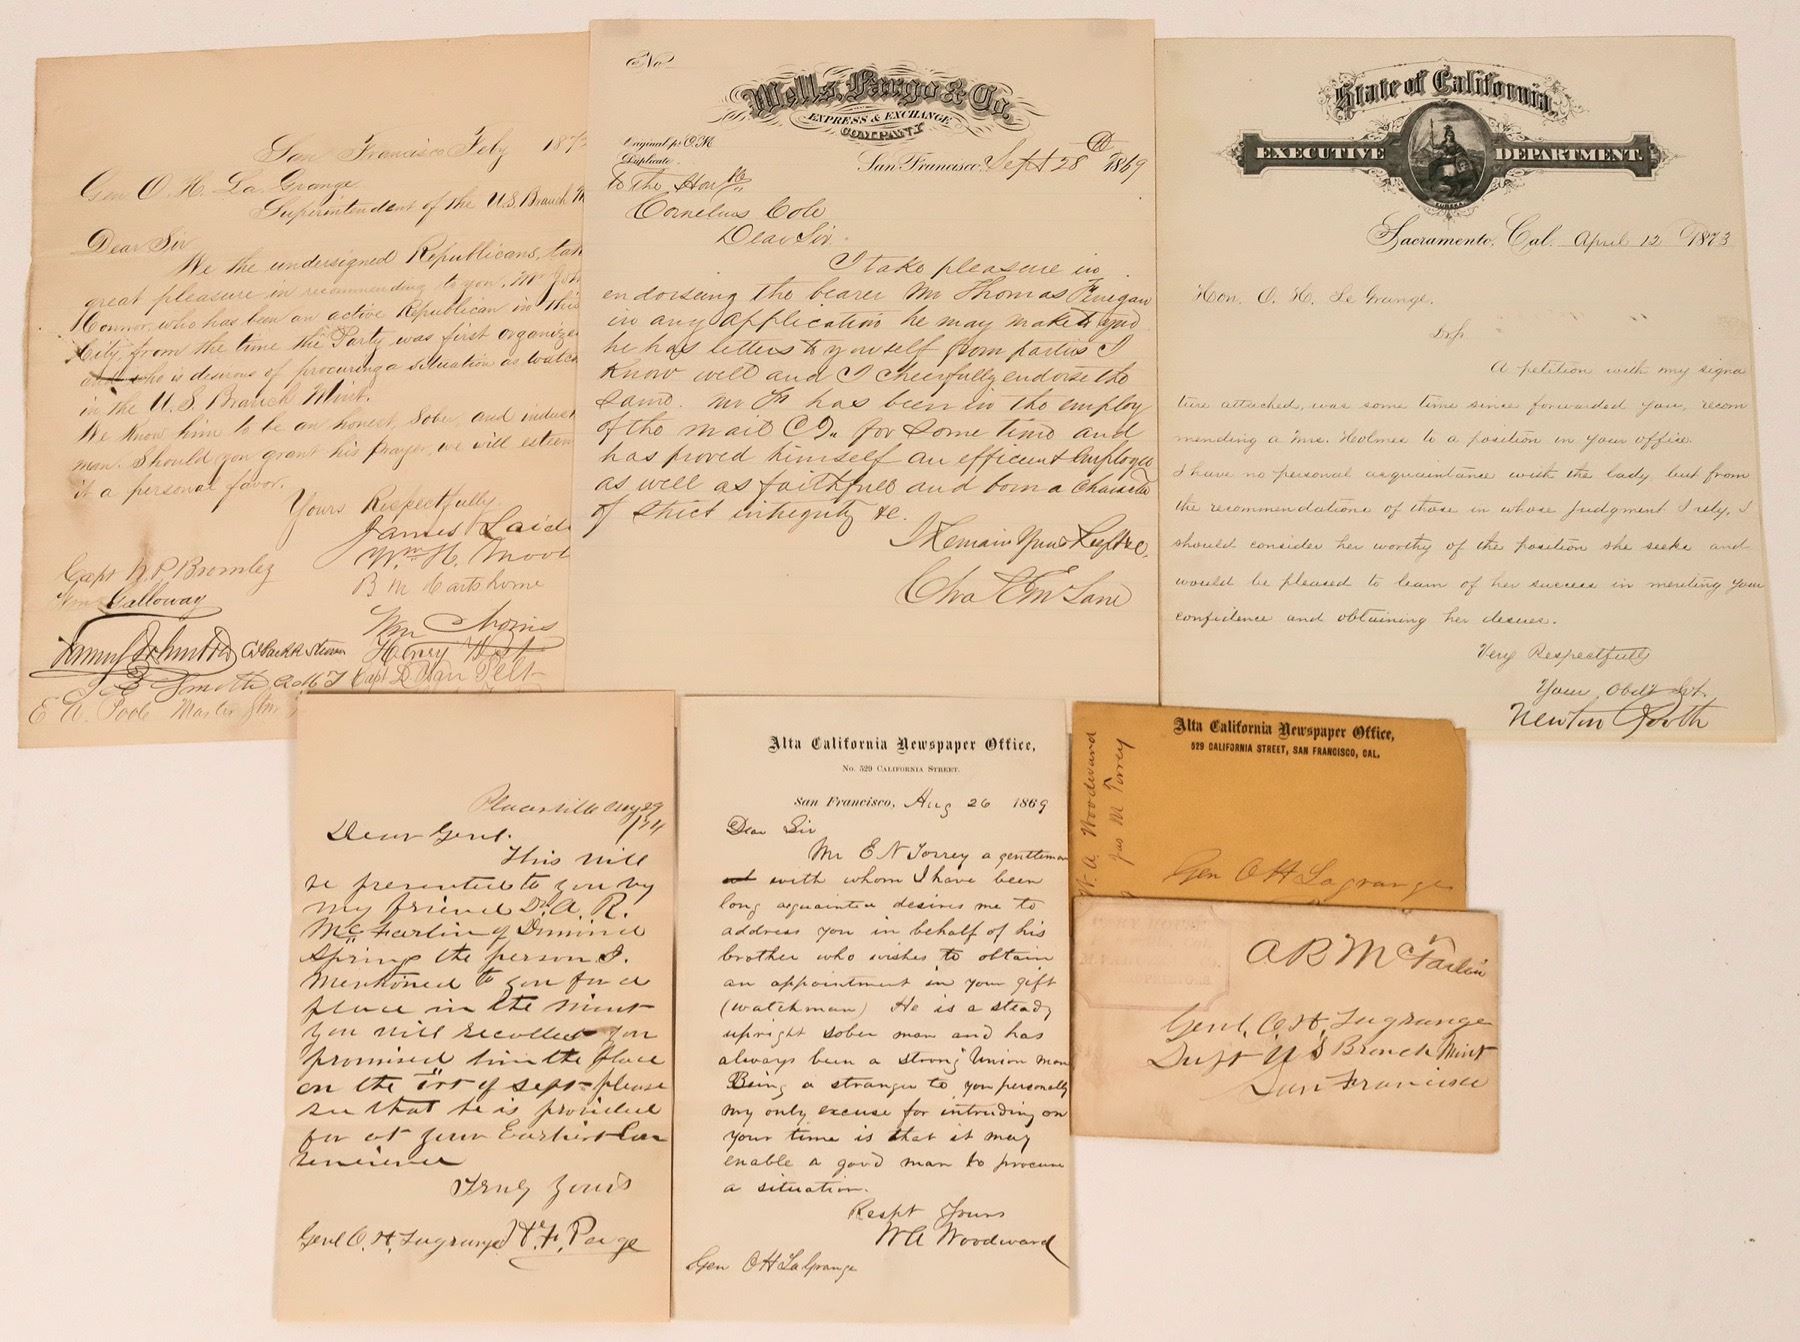 San Francisco Feby 187
Gen O. H. La Grange
Superintendent of the U.S. Branch M
Dear Sir
We the undersigned Republicans, take
great pleasure in recommending to you, Mr Joh
Connor, who has been an active Republican in this
City, from the time the Party was first organize
who is desirous of procuring a situation as watch
in the U.S. Branch Mint.
We know him to be an honest, sober, and indust
man. Should you grant his prayer, we will esteem
it a personal favor.
Yours Respectfully
James Laid
Wm H. Moo
Capt N. P. Bromley
B W Cartshorne
Wm Galloway
Wm Morris
Henry West
Smith
Capt D Van Pelt
E. A. Poole
No
Wells, Fargo & Co.
EXPRESS & EXCHANGE
COMPANY
Original pr O.M.
Duplicate
San Francisco, Sept 28 1869
to the Hon
Cornelius Cole
Dear Sir
I take pleasure in
endorseing the bearer Mr Thomas Finegan
in any application he may make and
he has letters to yourself from parties I
Know well and I cheerfully endorse the
Same. Mr F has been in the employ
of the mail Co. for some time and
has proved himself an efficient employee
as well as faithfull and born a
of strict intregrity &c.
I Remain Yours Respt &c
Chas E McLane
State of California,
EXECUTIVE DEPARTMENT.
EUREKA
Sacramento, Cal. April 12 1873
Hon. O. H. Le Grange.
A petition with my signa
ture attached, was some time since forwarded you, recom
mending a Mrs. Holmes to a position in your office.
I have no personal acquaintance with the lady but from
the recommendations of those in whose judgment I rely, I
should consider her worthy of the position she seeks and
would be pleased to learn of her success in meriting your
confidence and obtaining her desires.
Very Respectfully
Your Obdt Svt.
Newton Booth
Placerville Aug 29
/74
Dear Genl.
This will
be presented to you by
my friend Dr. A. R.
McFarlin of Diamond
Spring the person I
mentioned to you for a
place in the mint
you will recollect you
promised him the place
on the 1st of Sept please
see that he is provided
for at your Earliest Con
venience
Truly yours
Genl O. H. Lagrange H. F. Page
Alta California Newspaper Office,
No. 529 CALIFORNIA STREET.
San Francisco, Aug 26 1869
Dear Sir
Mr E N Torrey a gentleman
with whom I have been
long acquainted desires me to
address you in behalf of his
brother who wishes to obtain
an appointment in your gift
(watchman) He is a steady
upright sober man and has
always been a strong Union man
Being a stranger to you personally
my only excuse for intruding on
your time is that it may
enable a good man to procure
a situation.
Respt Yours
W A Woodward
Gen O H LaGrange
Alta California Newspaper Office,
529 CALIFORNIA STREET, SAN FRANCISCO, CAL.
A. Woodward
Jas M Torrey
Gen O H Lagrange
A R McFarlin
Genl. O. H. Lagrange
Supt U S Branch Mint
San Francisco